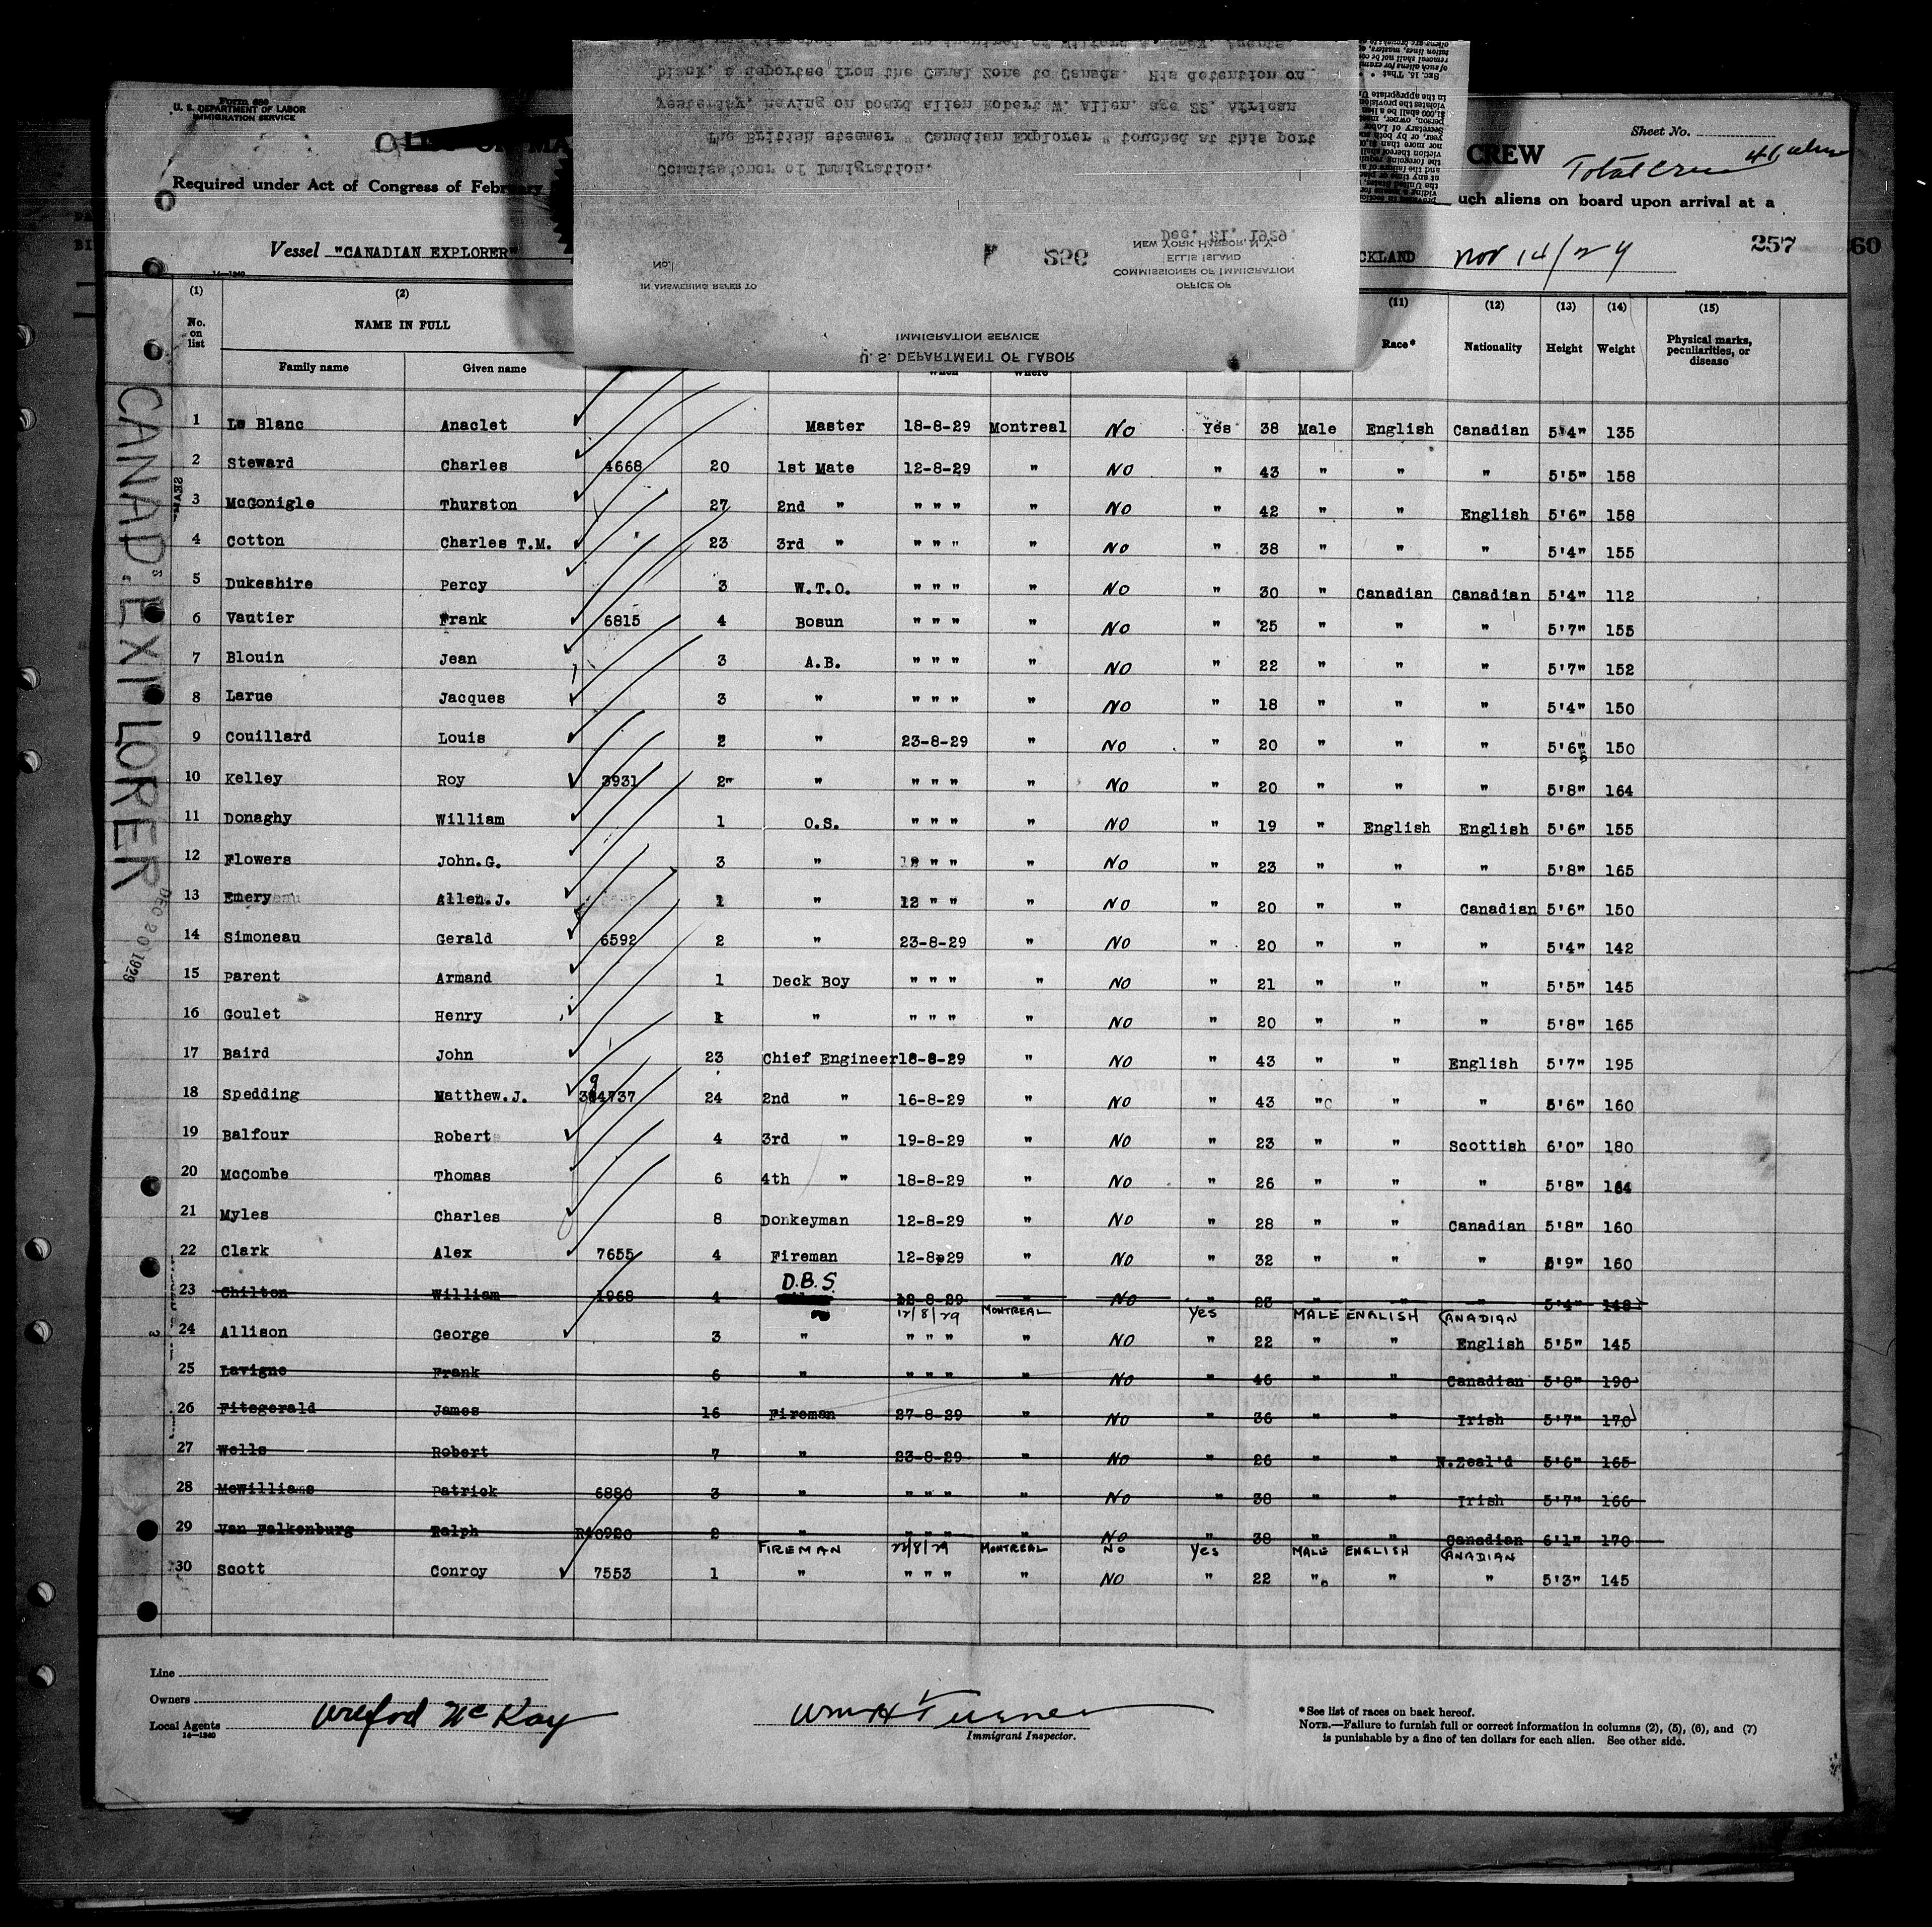 Form 680
U. S. DEPARTMENT OF LABOR
IMMIGRATION SERVICE
Sheet No.
CREW
Total Crew 41
Required under Act of Congress of February
uch aliens on board upon arrival at a
Vessel "CANADIAN EXPLORER"
CKLAND Nov 14/29
257
60
U. S. DEPARTMENT OF LABOR
IMMIGRATION SERVICE
OFFICE OF
COMMISSIONER OF IMMIGRATION
ELLIS ISLAND
NEW YORK HARBOR, N.Y.
IN ANSWERING REFER TO
No.
256
Dec. 21, 1929.
Commissioner of Immigration.
The British steamer " Canadian Explorer " touched at this port
yesterday, having on board alien Robert W. Allen, age 22, African
black, a deportee from the Canal Zone to Canada. His detention on
14—1240
(1) (2) (11) (12) (13) (14) (15)
No. on list NAME IN FULL Race* Nationality Height Weight Physical marks, peculiarities, or disease
Family name Given name When Where
1 Le Blanc Anaclet Master 18-8-29 Montreal No Yes 38 Male English Canadian 5'4" 135
2 Steward Charles 4668 20 1st Mate 12-8-29 " No " 43 " " " 5'5" 158
3 McGonigle Thurston 27 2nd " " " " " No " 42 " " English 5'6" 158
4 Cotton Charles T.M. 23 3rd " " " " " No " 38 " " " 5'4" 155
5 Dukeshire Percy 3 W.T.O. " " " " No " 30 " Canadian Canadian 5'4" 112
6 Vautier Frank 6815 4 Bosun " " " " No " 25 " " " 5'7" 155
7 Blouin Jean 3 A.B. " " " " No " 22 " " " 5'7" 152
8 Larue Jacques 3 " " " " " No " 18 " " " 5'4" 150
9 Couillard Louis 2 " 23-8-29 " No " 20 " " " 5'6" 150
10 Kelley Roy 3931 2" " " " " " No " 20 " " " 5'8" 164
11 Donaghy William 1 O.S. " " " " No " 19 " English English 5'6" 155
12 Flowers John.G. 3 " " " " No " 23 " " " 5'8" 165
13 Emery Allen.J. 1 " 12 " " " No " 20 " " Canadian 5'6" 150
14 Simoneau Gerald 6592 2 " 23-8-29 " No " 20 " " " 5'4" 142
15 Parent Armand 1 Deck Boy " " " " No " 21 " " " 5'5" 145
16 Goulet Henry 1 " " " " " No " 20 " " " 5'8" 165
17 Baird John 23 Chief Engineer 18-8-29 " No " 43 " " English 5'7" 195
18 Spedding Matthew.J. 394737 24 2nd " 16-8-29 " No " 43 " " " 5'6" 160
19 Balfour Robert 4 3rd " 19-8-29 " No " 23 " " Scottish 6'0" 180
20 McCombe Thomas 6 4th " 18-8-29 " No " 26 " " " 5'8" 164
21 Myles Charles 8 Donkeyman 12-8-29 " No " 28 " " Canadian 5'8" 160
22 Clark Alex 7655 4 Fireman 12-8-29 " No " 32 " " " 5'9" 160
D.B.S.
23 Chilton William 1968 4 12-8-29 " No " 23 " " " 5'4" 148
12/8/29 MONTREAL Yes MALE ENGLISH CANADIAN
24 Allison George 3 " " " " " No " 22 " " English 5'5" 145
25 Lavigne Frank 6 " " " " " No " 46 " " Canadian 5'8" 190
26 Fitzgerald James 16 Fireman 27-8-29 " No " 36 " " Irish 5'7" 170
27 Wells Robert 7 " 23-8-29 " No " 26 " " N.Zeal'd 5'6" 165
28 McWilliams Patrick 6880 3 " " " " " No " 38 " " Irish 5'7" 166
29 Van Falkenburg Ralph R40920 2 " " " " " No " 38 " " Canadian 6'1" 170
FIREMAN 23/8/29 MONTREAL NO Yes MALE ENGLISH CANADIAN
30 Scott Conroy 7553 1 " " " " " No " 22 " " " 5'3" 145
CANAD. EXPLORER
DEC 20 1929
Line
Owners
Local Agents
14—1240
Wm H Turner
Immigrant Inspector.
*See list of races on back hereof.
NOTE.—Failure to furnish full or correct information in columns (2), (5), (6), and (7)
is punishable by a fine of ten dollars for each alien. See other side.